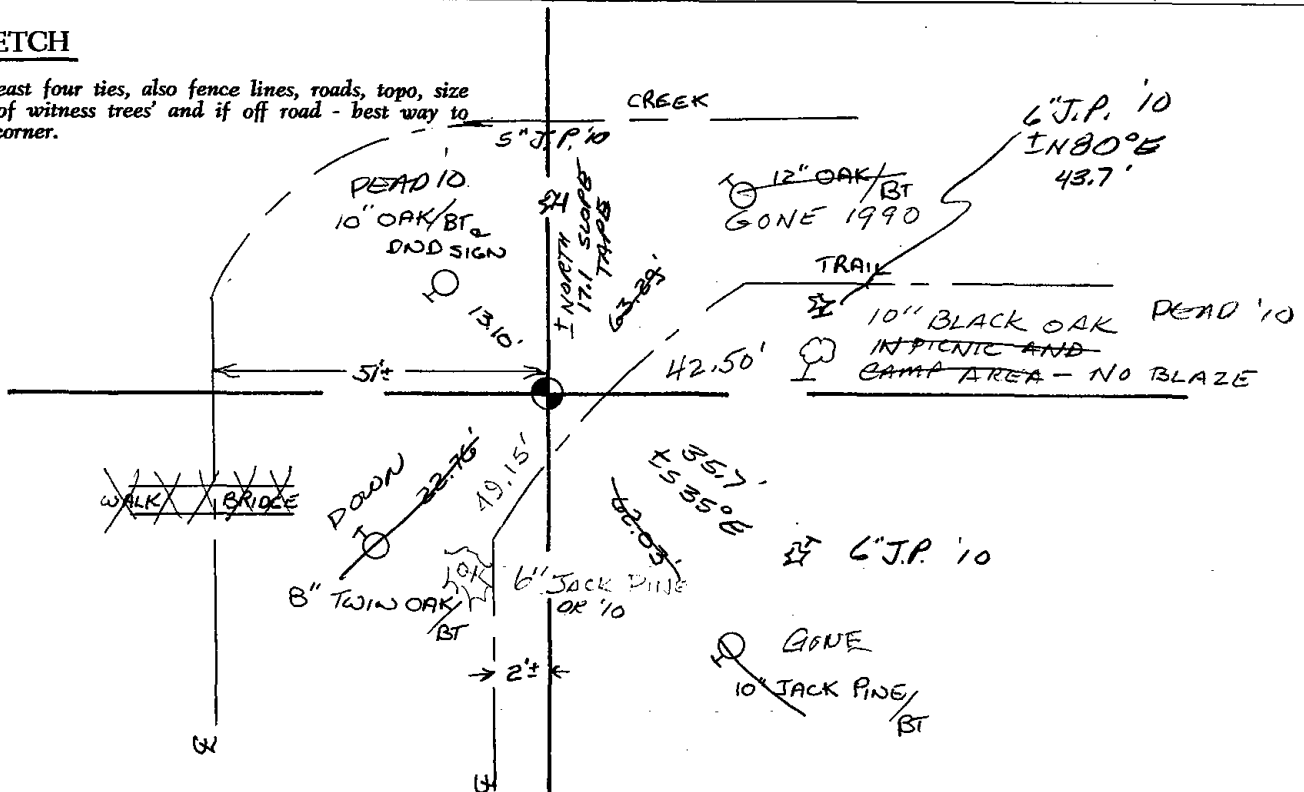 ETCH
east four ties, also fence lines, roads, topo, size
of witness trees' and if off road - best way to
corner.
CREEK
5" J.P. '10
6" J.P. '10
±N80°E
43.7'
DEAD '10
10" OAK/BT
DND SIGN
13.10'
± NORTH
17.1 SLOPE
TAPE
63.89'
12" OAK/BT
GONE 1990
TRAIL
10" BLACK OAK DEAD '10
IN PICNIC AND
CAMP AREA - NO BLAZE
42.50'
51'±
WALK BRIDGE
DOWN
22.76'
49.15'
8" TWIN OAK/BT
6" JACK PINE
OK '10
35.7'
±S35°E
62.03'
6" J.P. '10
GONE
10" JACK PINE/BT
2'±